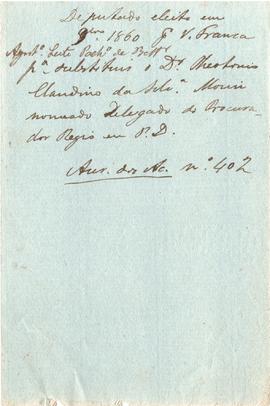 Deputado eleito em
9bro 1860 J. V. Franca
Agost.º Leite Pach.º de Bett.
p.ª substituir o Dr. Theotonio
Claudino da Silv.ª Moniz
nomeado Delegado do Procura-
dor Regio em P. D.
Aur. dos Ac. n.º 402